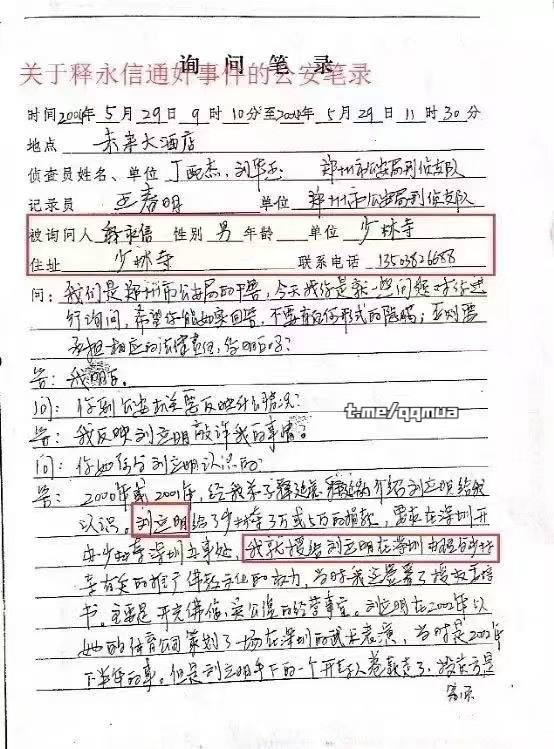 询问笔录
关于释永信通奸事件的公安笔录
时间2004年5月29日9时10分至2004年5月29日11时30分
地点 未来大酒店
侦查员姓名、单位 丁配杰、刘华 郑州市公安局刑侦支队
记录员 王春明 单位 郑州市公安局刑侦支队
被询问人 释永信 性别 男 年龄 单位 少林寺
住址 少林寺 联系电话
问:我们是郑州市公安局的干警,今天我们就一些问题对你进
行询问,希望你能如实回答,不要有任何形式的隐瞒;否则要
承担相应的法律责任,你明白吗?
答:我明白。
问:你到公安机关要反映什么情况?
t.me/qqmua
答:我反映刘立明敲诈我的事情。
问:你如何与刘立明认识的
答:2000年或2001年,经我弟子释延 介绍刘立明给我
认识,刘立明给了少林寺3万或5万的捐款,要求在深圳开
办少林寺深圳办事处,我就授给刘立明在深圳办理与少林
寺有关的推广佛教文化的权力,当时我还签署了授权委托
书。主要是开光佛像、 的经营事宜。刘立明在2002年以
她的体育公司策划了一场在深圳的武术表演,当时是2002年
下半年的事。但是刘立明手下的一个 人卷款走了,投资方是